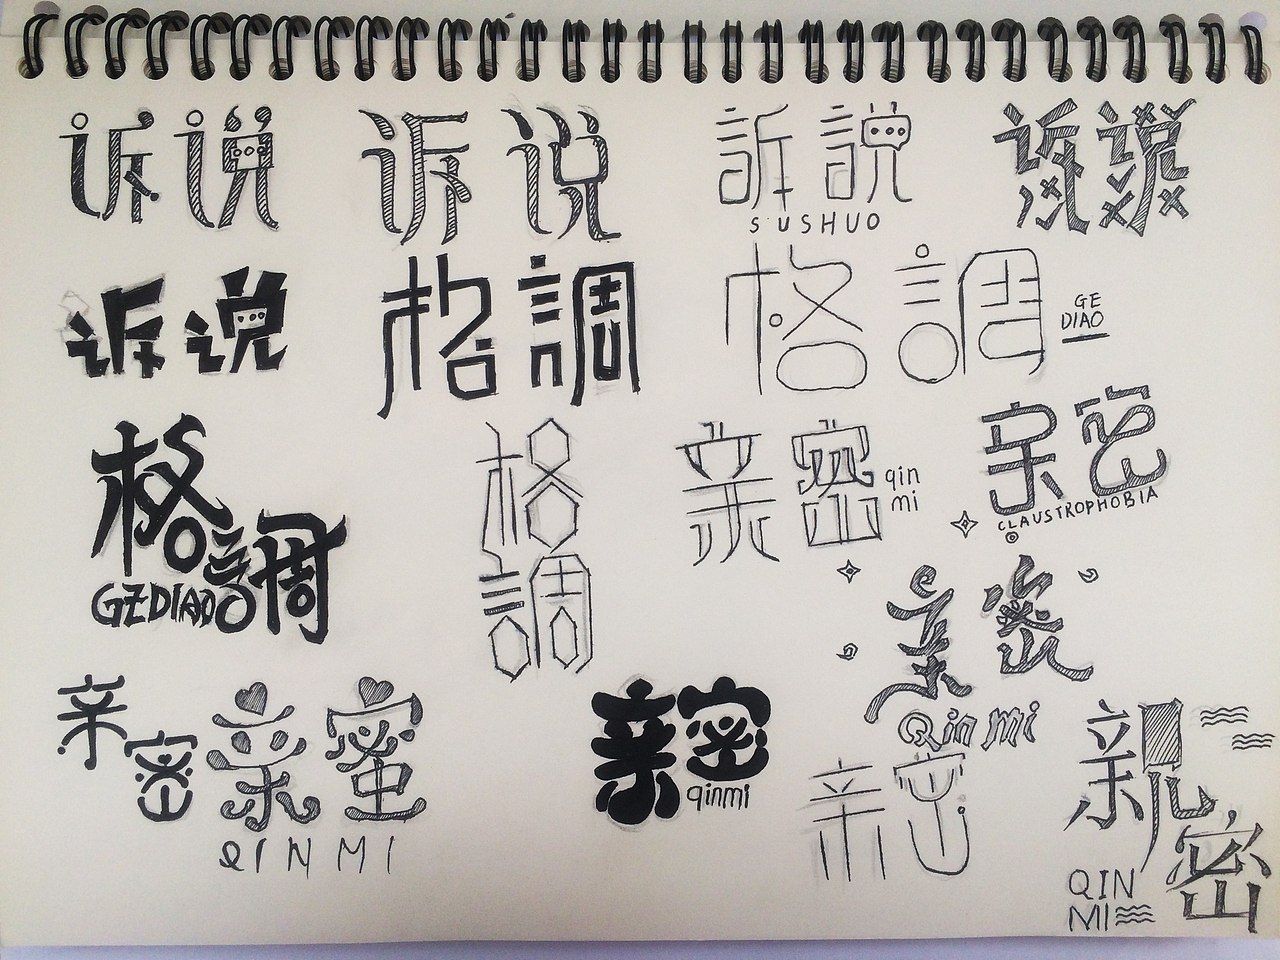 诉说
诉说
訴説
SUSHUO
诉说
诉说
格調
格調
GE
DIAO
格調
GEDIAO
格調
亲密
qin
mi
亲密
CLAUSTROPHOBIA
亲密
Qin Mi
亲密
亲蜜
QINMI
亲密
qinmi
亲密
親密
QIN
MI